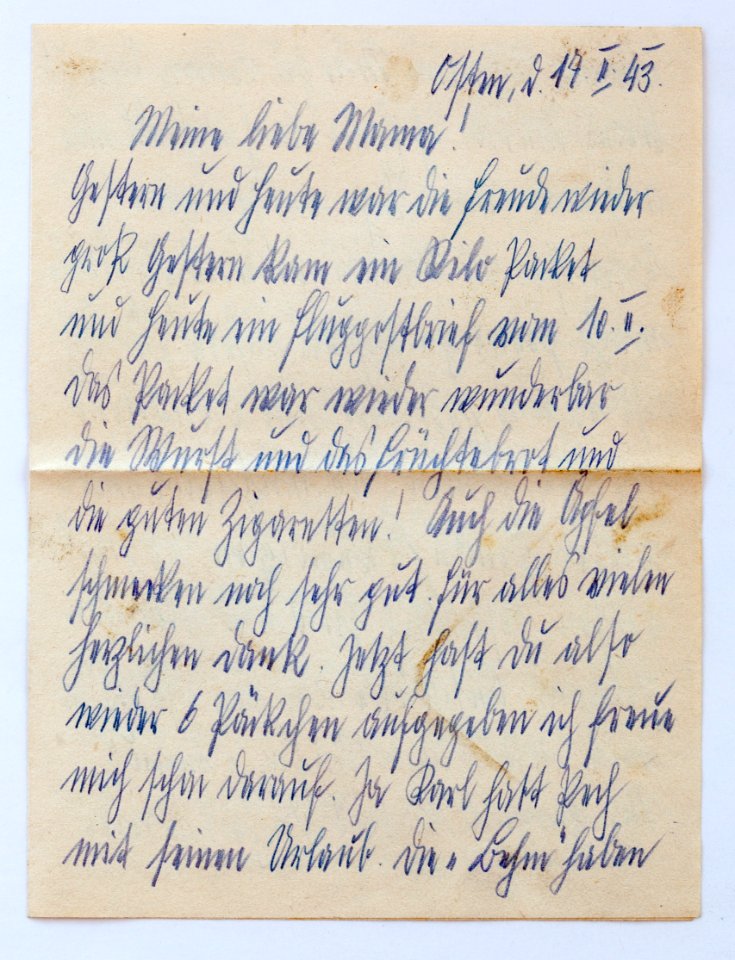 Osten, d. 17 II. 43.
Meine liebe Mama!
Gestern und heute war die Freude wieder
groß Gestern kam ein Kilo Packet
und heute ein Flugpostbrief vom 10. II.
Das Packet war wieder wunderbar
die Wurst und das Früchtebrot und
die guten Zigaretten! Auch die Äpfel
schmecken noch sehr gut. Für alles vielen
herzlichen Dank. Jetzt hast Du also
wieder 6 Päckchen aufgegeben ich freue
mich schon darauf. Ja Karl hatt Pech
mit seinen Urlaub. Die "Behm" haben